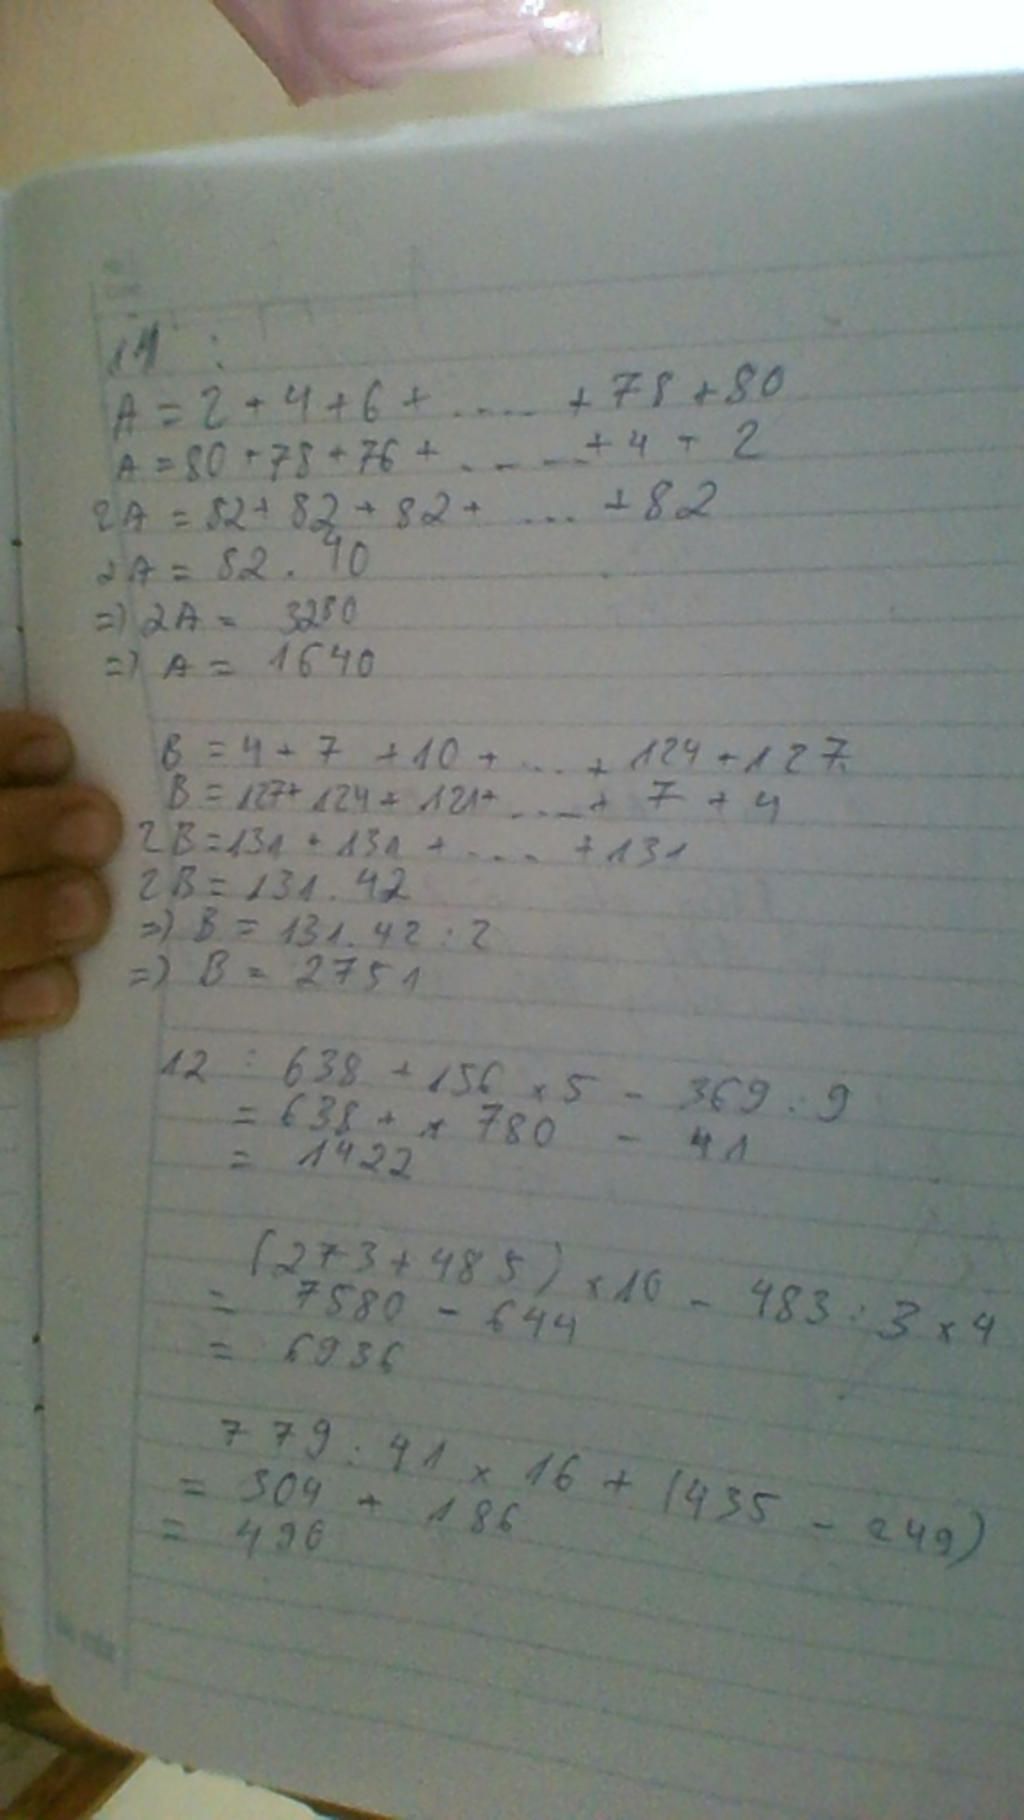 11 :
A = 2 + 4 + 6 + ..... + 78 + 80
A = 80 + 78 + 76 + ..... + 4 + 2
2A = 82 + 82 + 82 + .... + 82
2A = 82 . 40
=) 2A = 3280
=) A = 1640
B = 4 + 7 + 10 + .... + 124 + 127
B = 127 + 124 + 121 + ..... + 7 + 4
2B = 131 + 131 + .... + 131
2B = 131 . 42
=) B = 131 . 42 : 2
=) B = 2751
12 : 638 + 156 x 5 - 369 : 9
= 638 + x 780 - 41
= 1422
(273 + 485) x 10 - 483 : 3 x 4
= 7580 - 644
= 6936
779 : 41 x 16 + (435 - 249)
= 304 + 186
= 490